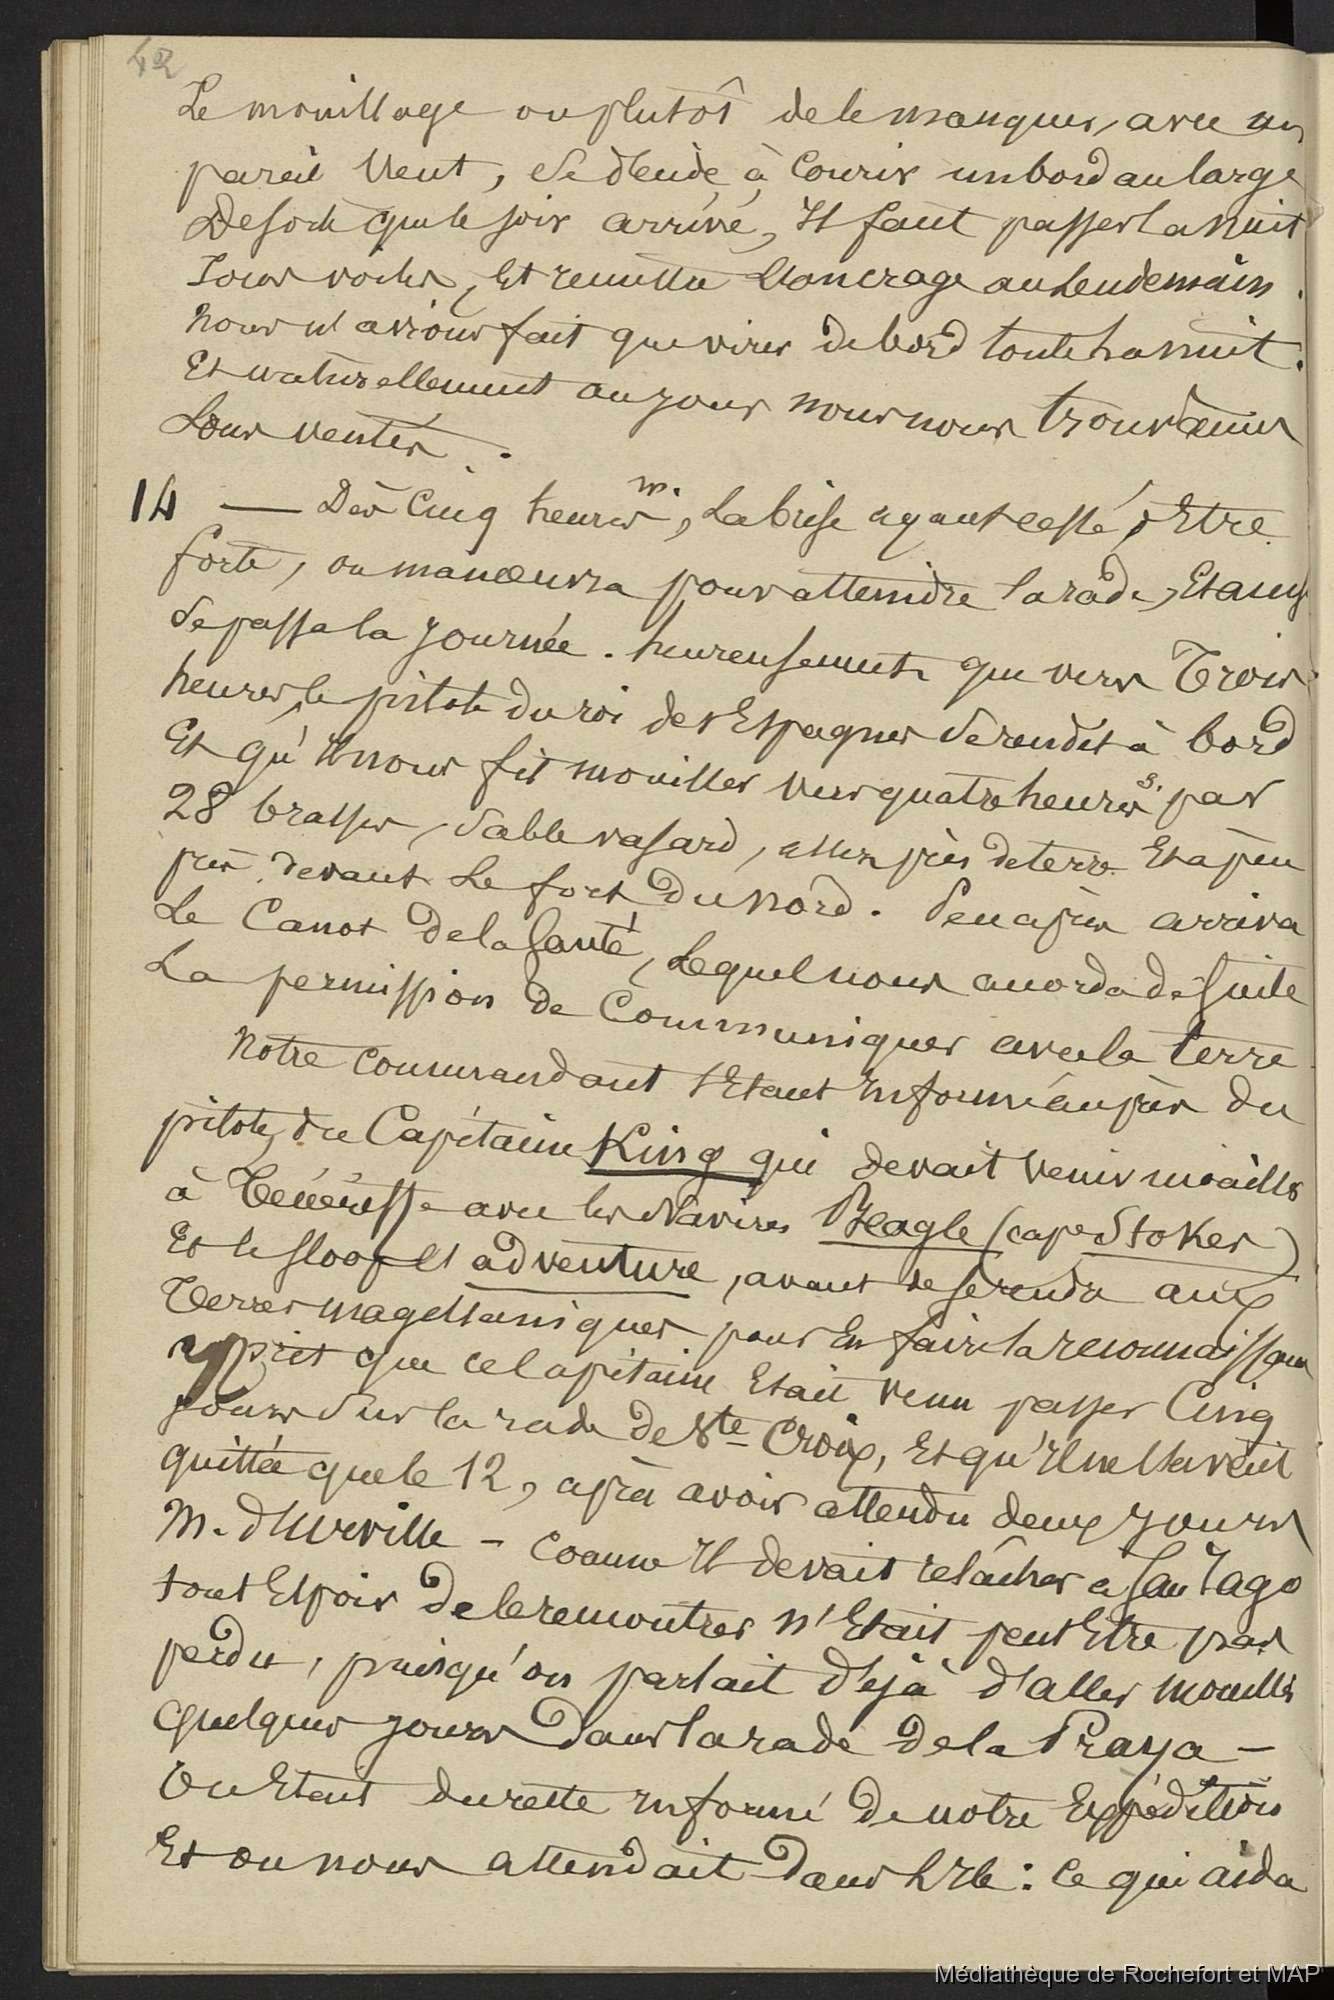 42
Le mouillage ou plutôt de le manquer, avec un
pareil vent, se décide, à Courir un bord au large
De sorte que le soir arrivé, Il faut passer la nuit
sous voiles, Et remettre L'ancrage au Lendemain.
Nous n'avions fait que virer de bord toute la nuit.
Et naturellement au jour nous nous trouvâmes
Sous ventés.
14 — Dès Cinq heures m., La brise ayant cessé d'Etre
forte, on manœuvra pour atteindre la rade, Et ainsi
se passa la journée. heureusement que vers Trois
heures, le pilote du roi des Espagnes se rendit à bord
Et qu'Il nous fit mouiller vers quatre heures s. par
28 brasses, sable vasard, assez près de terre Et à peu
près devant Le fort du Nord. Peu après arriva
Le Canot de la Santé, Lequel nous accorda de suite
La permission de Communiquer avec la terre
Notre Commandant s'Etant Informé auprès du
pilote, du Capitaine King qui devait venir mouiller
à Ténériffe avec les Navires Beagle (cape Stokes)
Et le sloop Et adventure, avant de se rendre aux
Terres magellaniques pour En faire la reconnaissance
Apprit que ce Capitaine Etait venu passer Cinq
jours sur la rade de Ste Croix, Et qu'Il ne l'avait
quittée que le 12, après avoir attendu deux jours
M. d'Urville - Comme Il devait relâcher a San Iago
tout Espoir de le rencontrer n'Etait peut Etre pas
perdu, puisqu'on parlait déjà d'aller mouiller
quelques jours dans la rade de la Praya -
On Etait du reste Informé de notre Expédition
Et on nous attendait dans L'Ile : ce qui aida
Médiathèque de Rochefort et MAP